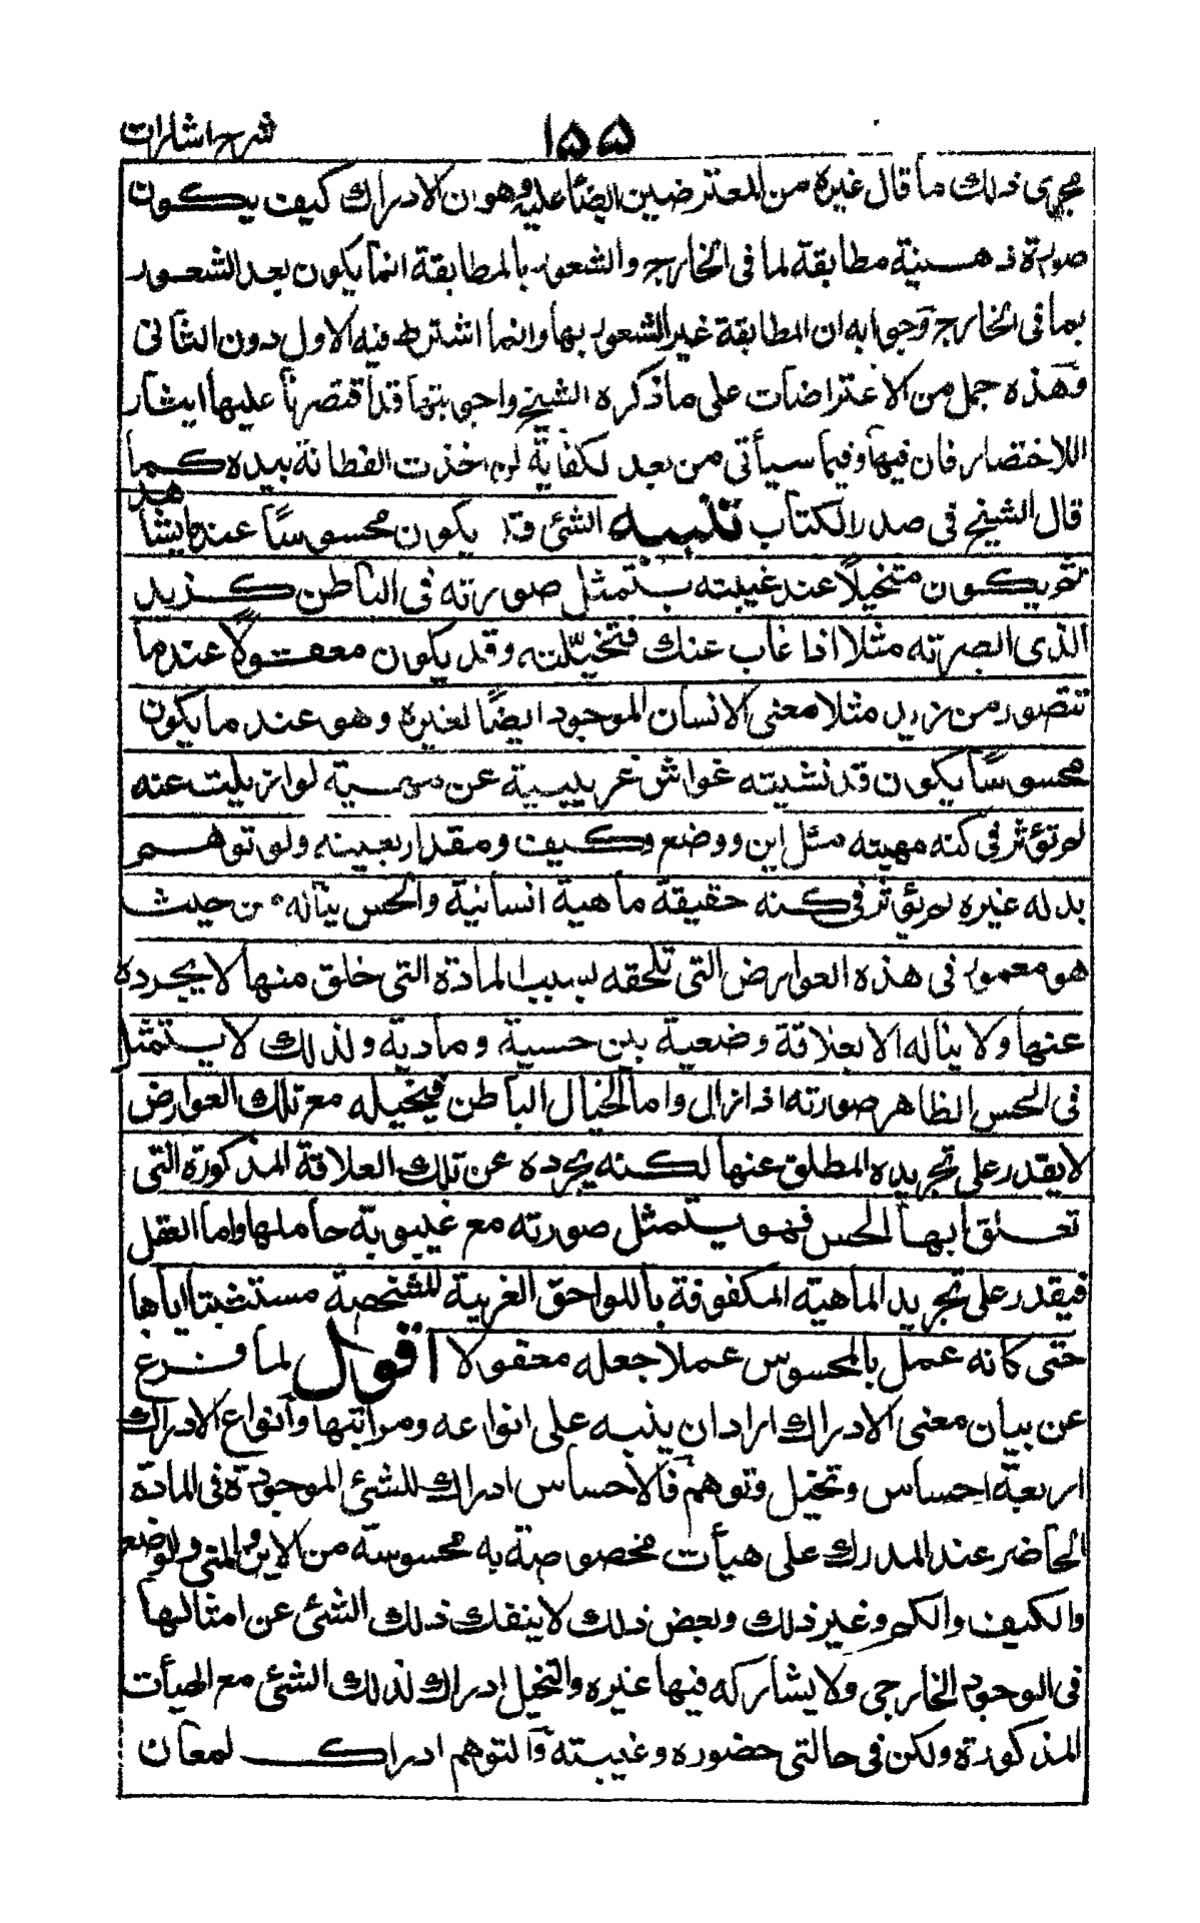 شرح اشارات
۱۵۵
مجری ذلك ما قال غیره من المعترضین ایضا علیه وهو ان الادراك كیف یكون
صورة ذهنیة مطابقة لما فی الخارج والشعور بالمطابقة انما یكون بعد الشعور
بما فی الخارج وجوابه ان المطابقة غیر الشعور بها وانما اشترط فیه الاول دون الثانی
وهذه جمل من الاعتراضات علی ما ذكره الشیخ واجوبتها قد اقتصرنا علیها ایثار
اللاختصار فان فیها وفیما سیأتی من بعد لكفایة لمن اخذت الفطانة بیده كما
قال الشیخ فی صدر الكتاب تنبیه الشئ قد یكون محسوسًا عندما یشاهد
ثم یكون متخیلًا عند غیبته بتمثل صورته فی الباطن كزید
الذی ابصرته مثلا اذا غاب عنك فتخیّلته وقد یكون معقولًا عندما
تتصور من زید مثلا معنی الانسان الموجود ایضًا لغیره وهو عند ما یكون
محسوسًا یكون قد غشیته غواش غریبیة عن مهیة لو ازیلت عنه
لم تؤثر فی كنه مهیته مثل این ووضع وكیف ومقدار بعینه ولو توهم
بدله غیره لم یؤثر فی كنه حقیقة ماهیة انسانیة والحس یناله من حیث
هو معمور فی هذه العوارض التی تلحقه بسبب المادة التی خلق منها لا یجرده
عنها ولا یناله الا بعلاقة وضعیة بین حسیة ومادیة ولذلك لا یتمثل
فی الحس الظاهر صورته اذا زال واما الخیال الباطن فیخیله مع تلك العوارض
لا یقدر علی تجریده المطلق عنها لكنه یجرده عن تلك العلاقة المذكورة التی
تعلق بها الحس فهو یتمثل صورته مع غیبوبة حاملها واما العقل
فیقدر علی تجرید الماهیة المكفوفة باللواحق الغریبة المشخصة مستثبتا ایاها
حتی كانه عمل بالمحسوس عملا جعله معقولا اقول لما فرغ
عن بیان معنی الادراك اراد ان ینبه علی انواعه ومراتبها وانواع الادراك
اربعة احساس وتخیل وتوهم فالاحساس ادراك للشئ الموجودة فی المادة
الحاضر عند المدرك علی هیأت مخصوصة به محسوسة من الاین والمتی والوضع
والكیف والكم وغیر ذلك وبعض ذلك لا ینفك ذلك الشئ عن امثالها
فی الوجود الخارجی ولا یشاركه فیها غیره والتخیل ادراك لذلك الشئ مع الهیأت
المذكورة ولكن فی حالتی حضوره وغیبته والتوهم ادراك لمعان